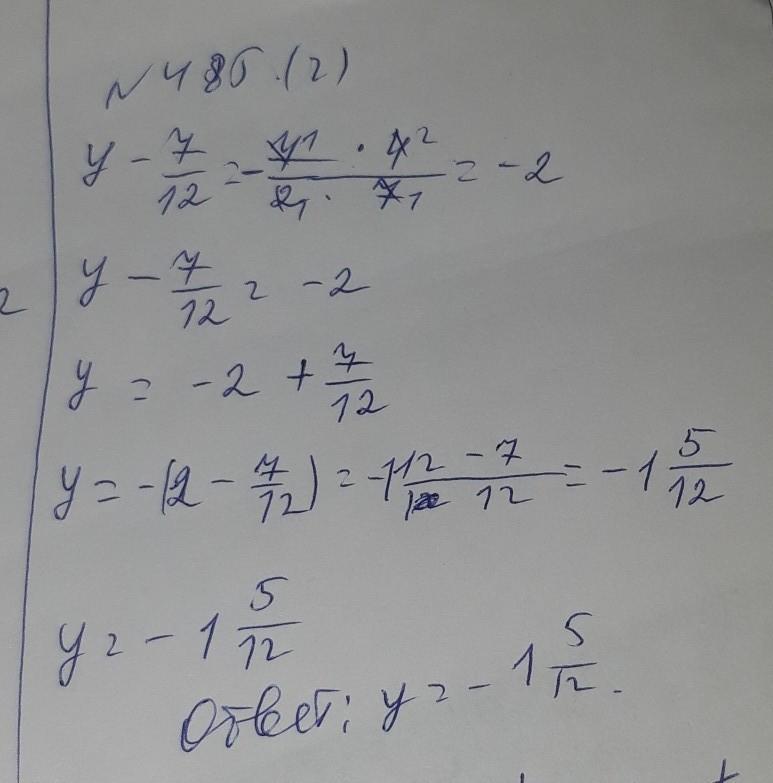 № 485.(2)
y - 7/12 = - 1 · 4 2 / 1 · 7 1 = -2
y - 7/12 = -2
y = -2 + 7/12
y = -(2 - 7/12) = -1 12 - 7 / 12 = -1 5/12
y = -1 5/12
Ответ: y = -1 5/12.
2